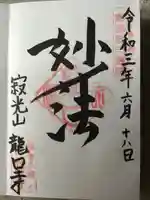 令和三年六月十八日
妙法
寂光山 龍口寺